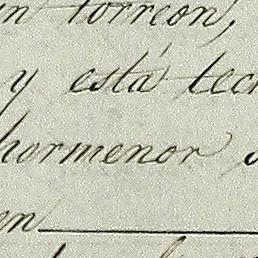 un torreon,
y está tec
hormenor s
en